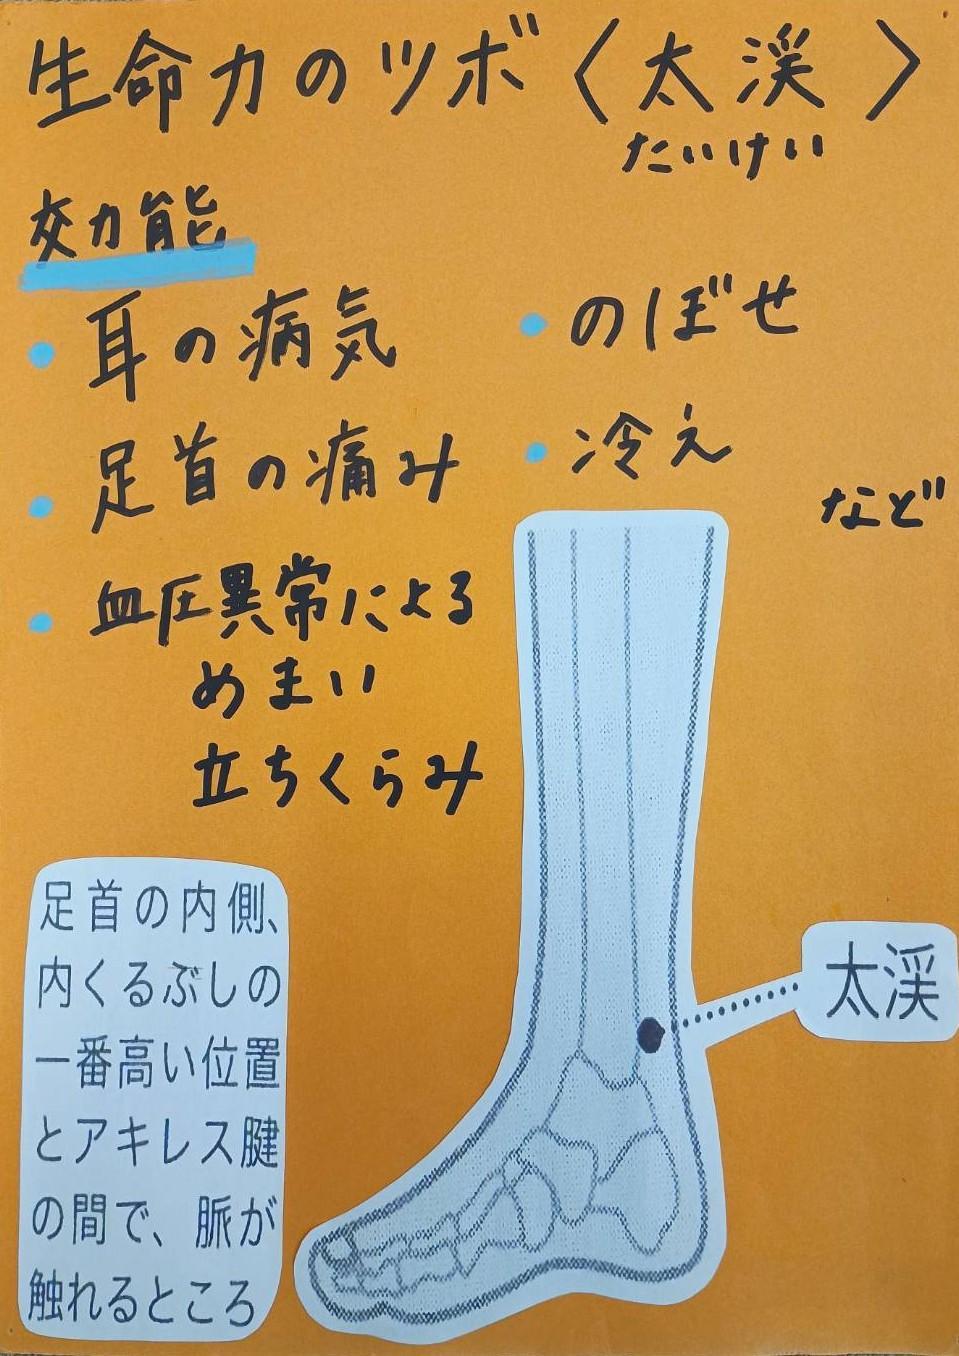 生命力のツボ〈太渓〉
たいけい
効能
・耳の病気
・足首の痛み
・血圧異常による
めまい
立ちくらみ
・のぼせ
・冷え
など
太渓
足首の内側、
内くるぶしの
一番高い位置
とアキレス腱
の間で、脈が
触れるところ